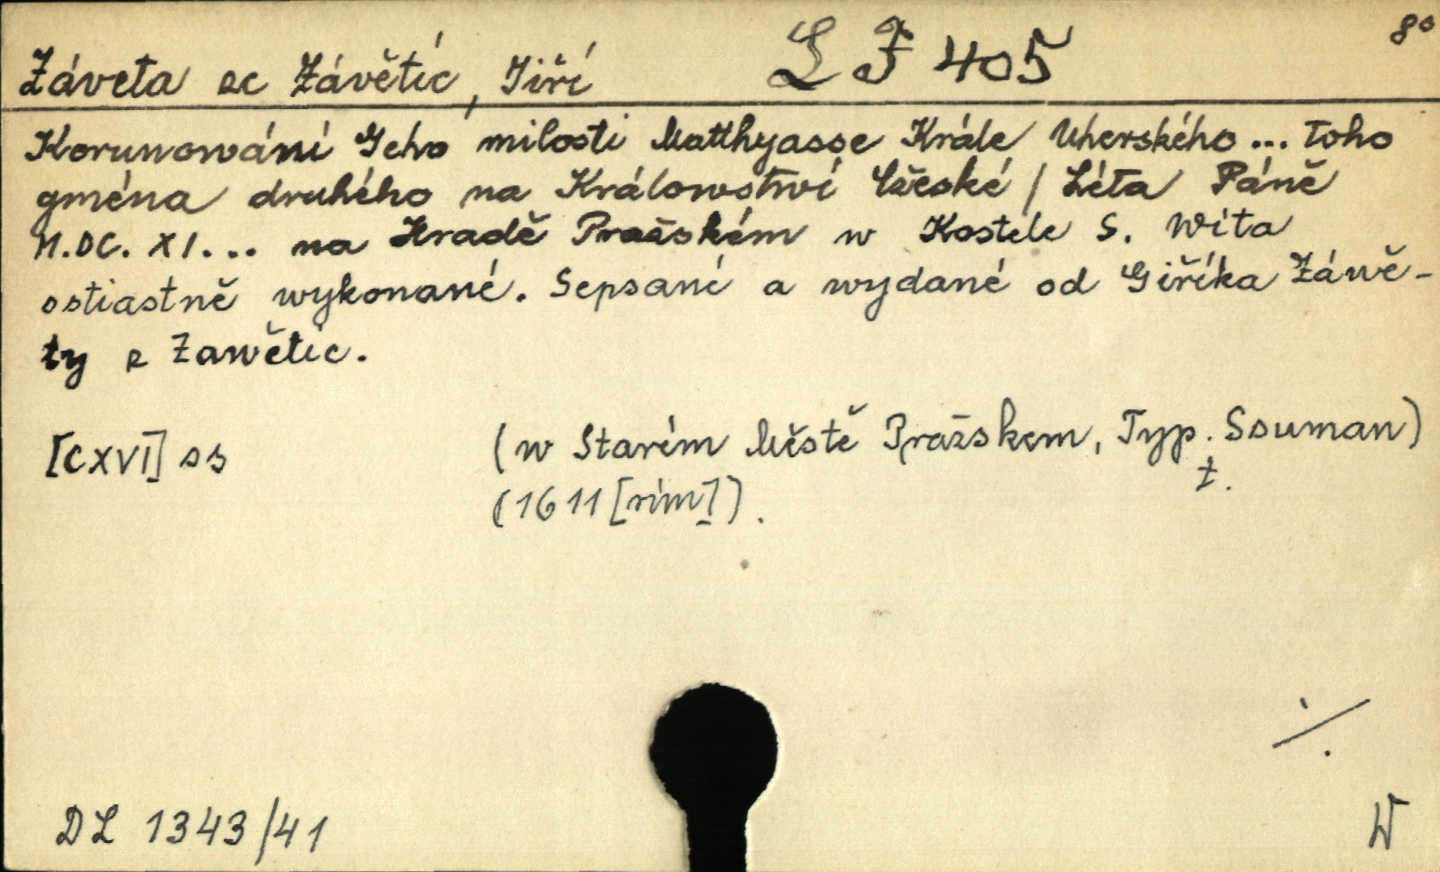 Záveta ze Závětíc, Jiří L F 405 8°
Korunowání Geho milosti Matthyasse Krále Uherského ... toho
gména druhého na Králowstwí Cžeské / Léta Páně
M.DC. XI... na Hradě Pražském w Kostele S. Wíta
sstiastně wykonané. Sepsané a wydané od Giříka Záwě-
ty z Zawětic.
[CXVI] ss (w Starém Městě Pražskem, Typ. Ssuman)
t.
(1611 [rim]).
./.
DL 1343/41 W